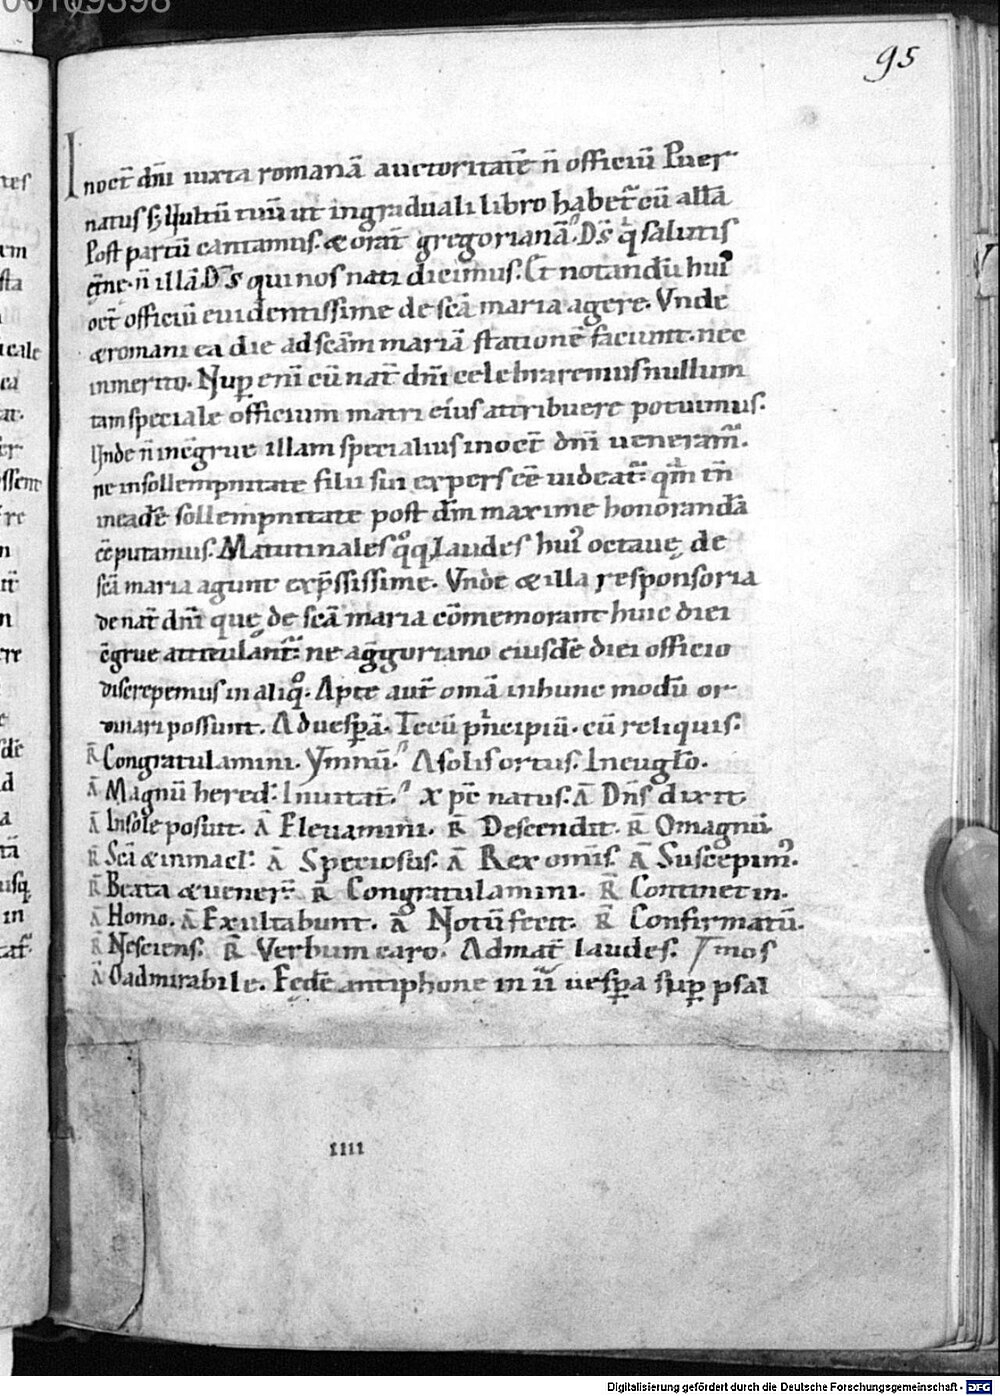 00109398
95
In oct̄ dñi iuxta romanā auctoritatē ñ officiū Puer
natus s; Uultū tuū ut in graduali libro habet̄ cū allā
Post partū cantamus. & orat̄ gregorianā. D̄s q̇ salutis
et̄ne. ñ illā D̄s qui nos nati dicimus. Et notandū hui᾽
oct̄ officiū euidentissime de sc̄a maria agere. Vnde
& romani ea die ad sc̄am mariā stationē faciunt. nec
inmerito. Nup̱ enī cū nat̄ dñi celebraremus nullum
tam speciale officium matri eius attribuere potuimus.
Unde ñ incōgrue illam specialius in oct̄ dñi ueneram̄.
ne in sollempnitate filii sui expers eē uideat̄. qm̄ tn̄
in eadē sollempnitate post dn̄m maxime honorandā
eē putamus. Matutinales q°q; Laudes hui᾽ octauę de
sc̄a maria agunt exp̄ssissime. Vnde & illa responsoria
de nat̄ dñi que de sc̄a maria cōmemorant huic diei
cōgrue attitulant̄. ne a ḡgoriano eiusdē diei officio
discrepemus in aliq°. Apte aut̄ om̄a in hunc modū or
dinari possunt. Ad uesp̱ā. Tecū ṗncipiū. cū reliquis.
R̄ Congratulamini. Ymnū. A solis ortus. In euglō.
Ā Magnū hered. Inuitat̄. xp̄c natus. Ā Dn̄s dixit
Ā In sole posuit. Ā Eleuamini. R̄ Descendit. R̄ O magnū
R̄ Sc̄a & inmacl. Ā Speciosus. Ā Rex om̄is. Ā Suscepim᾽.
R̄ Beata & uener̄. R̄ Congratulamini. R̄ Continet in.
Ā Homo. Ā Exultabunt. Ā Notū fecit. R̄ Confirmatū.
R̄ Nesciens. R̄ Verbum caro. Ad mat̄ laudes. Ymos
Ā O admirabile. Eędē antiphone in ii uesp̱a sup̱ psal
IIII
Digitalisierung gefördert durch die Deutsche Forschungsgemeinschaft - DFG